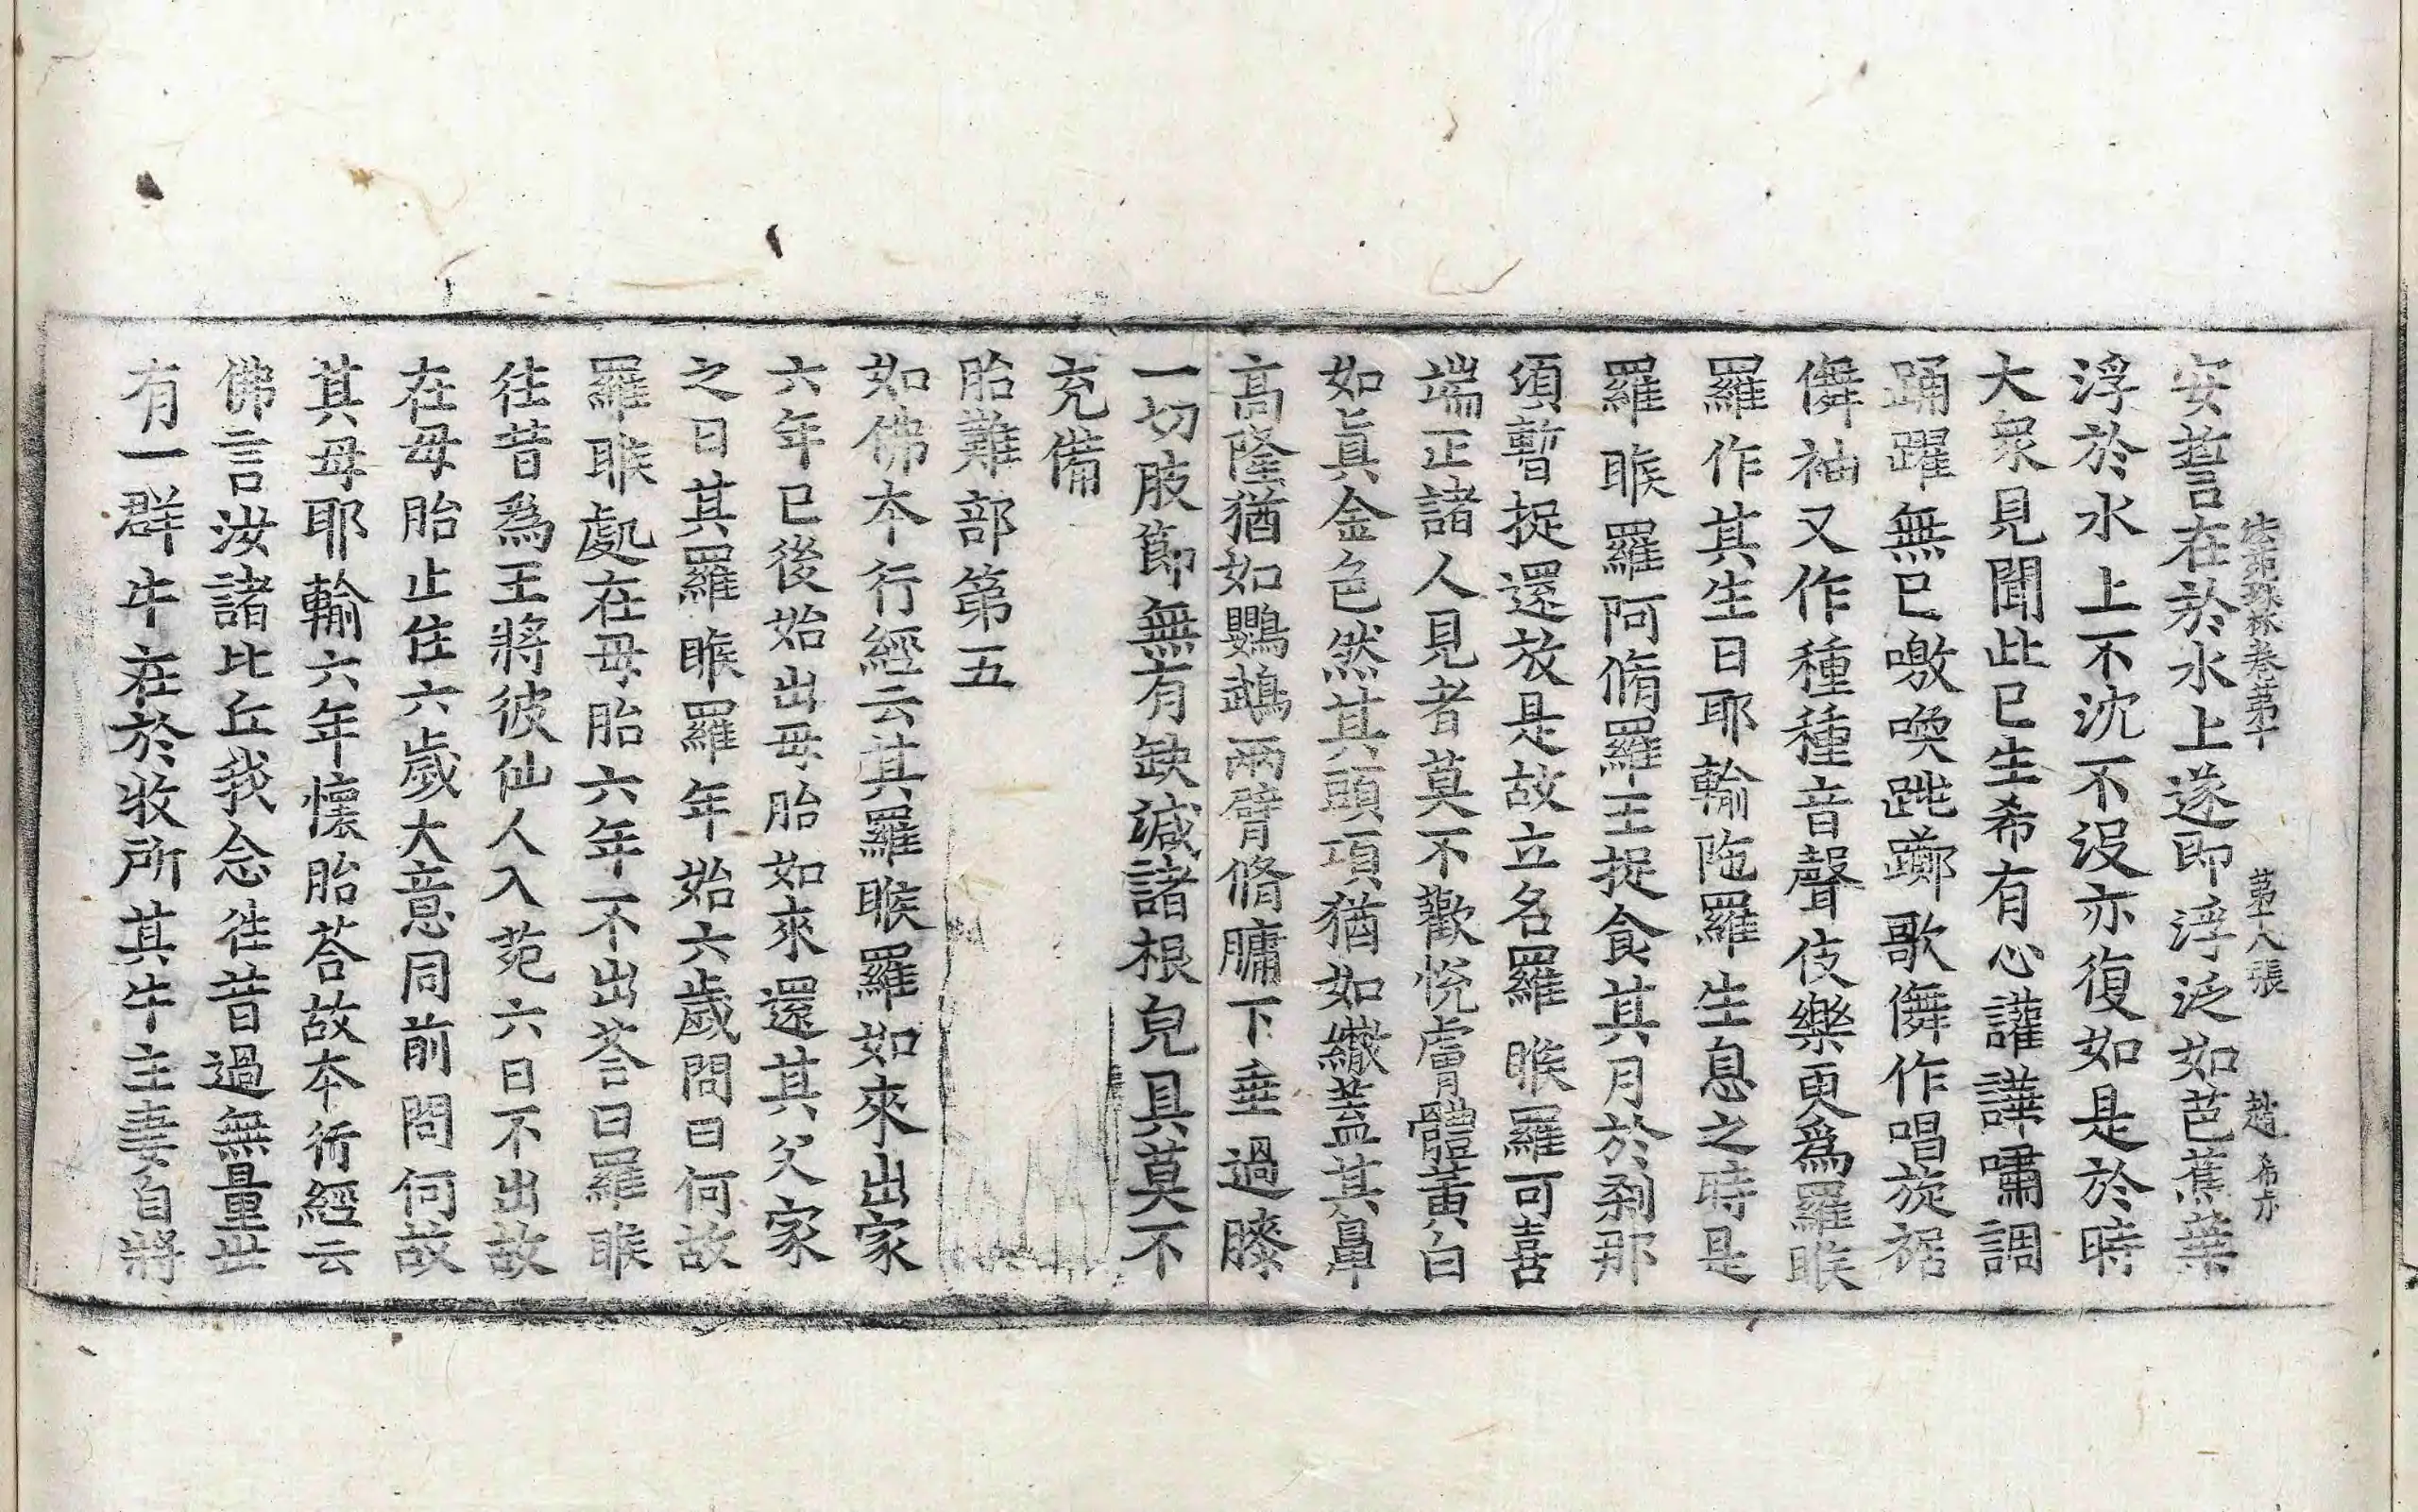 法苑珠林卷第十 第十八張 趙 希亦
安誓言在於水上遂即浮泛如芭蕉葉
浮於水上不沈不沒亦復如是於時
大衆見聞此已生希有心讙譁嘯調
踊躍無已噭喚跳躑歌儛作唱旋裾
儛袖又作種種音聲伎樂更爲羅睺
羅作其生日耶輸陁羅生息之時是
羅睺羅阿脩羅王捉食其月於刹那
須暫捉還放是故立名羅睺羅可喜
端正諸人見者莫不歡悅膚體黃白
如眞金色然其頭項猶如繖蓋其鼻
高隆猶如鸚鵡兩臂脩牗下垂過膝
一切肢節無有缺減諸根皃具莫不
充備
胎難部第五
如佛本行經云其羅睺羅如來出家
六年已後始出母胎如來還其父家
之日其羅睺羅年始六歲問曰何故
羅睺處在母胎六年不出荅曰羅睺
往昔爲王將彼仙人入苑六日不出故
在母胎止住六歲大意同前問何故
其母耶輸六年懷胎荅故本行經云
佛言汝諸比丘我念往昔過無量世
有一群牛在於牧所其牛主妻自將